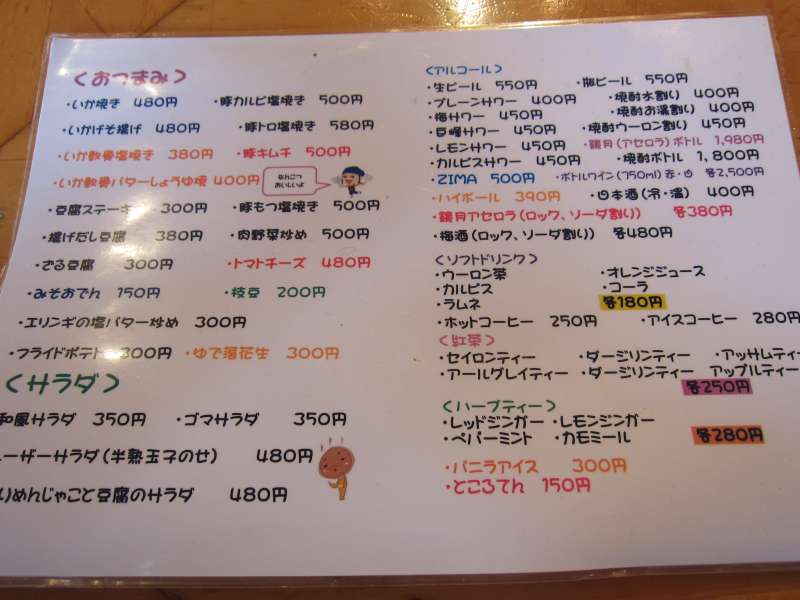 〈おつまみ〉
・いか焼き 480円 ・豚カルビ塩焼き 500円
・いかげそ揚げ 480円 ・豚トロ塩焼き 580円
・いか軟骨塩焼き 380円 ・豚キムチ 500円
・いか軟骨バターしょうゆ焼 400円
なんこつ
おいしいよ
・豆腐ステーキ 300円 ・豚もつ塩焼き 500円
・揚げだし豆腐 380円 ・肉野菜炒め 500円
・ざる豆腐 300円 ・トマトチーズ 480円
・みそおでん 150円 ・枝豆 200円
・エリンギの塩バター炒め 300円
・フライドポテト 300円 ・ゆで落花生 300円
〈サラダ〉
和風サラダ 350円 ・ゴマサラダ 350円
ーザーサラダ(半熟玉子のせ) 480円
りめんじゃこと豆腐のサラダ 480円
〈アルコール〉
・生ビール 550円 ・瓶ビール 550円
・プレーンサワー 400円 ・焼酎水割り 400円
・梅サワー 450円 ・焼酎お湯割り 400円
・巨峰サワー 450円 ・焼酎ウーロン割り 450円
・レモンサワー 450円 ・鏡月(アセロラ)ボトル 1,980円
・カルピスサワー 450円 ・焼酎ボトル 1,800円
・ZIMA 500円 ・ボトルワイン(750ml)赤・白 各2,500円
・ハイボール 390円 ・日本酒(冷・温) 400円
・鏡月アセロラ(ロック、ソーダ割り) 各380円
・梅酒(ロック、ソーダ割り) 各480円
〈ソフトドリンク〉
・ウーロン茶 ・オレンジジュース
・カルピス ・コーラ
・ラムネ 各180円
・ホットコーヒー 250円 ・アイスコーヒー 280円
〈紅茶〉
・セイロンティー ・ダージリンティー ・アッサムティー
・アールグレイティー ・ダージリンティー アップルティー
各250円
〈ハーブティー〉
・レッドジンガー ・レモンジンガー
・ペパーミント ・カモミール 各280円
・バニラアイス 300円
・ところてん 150円